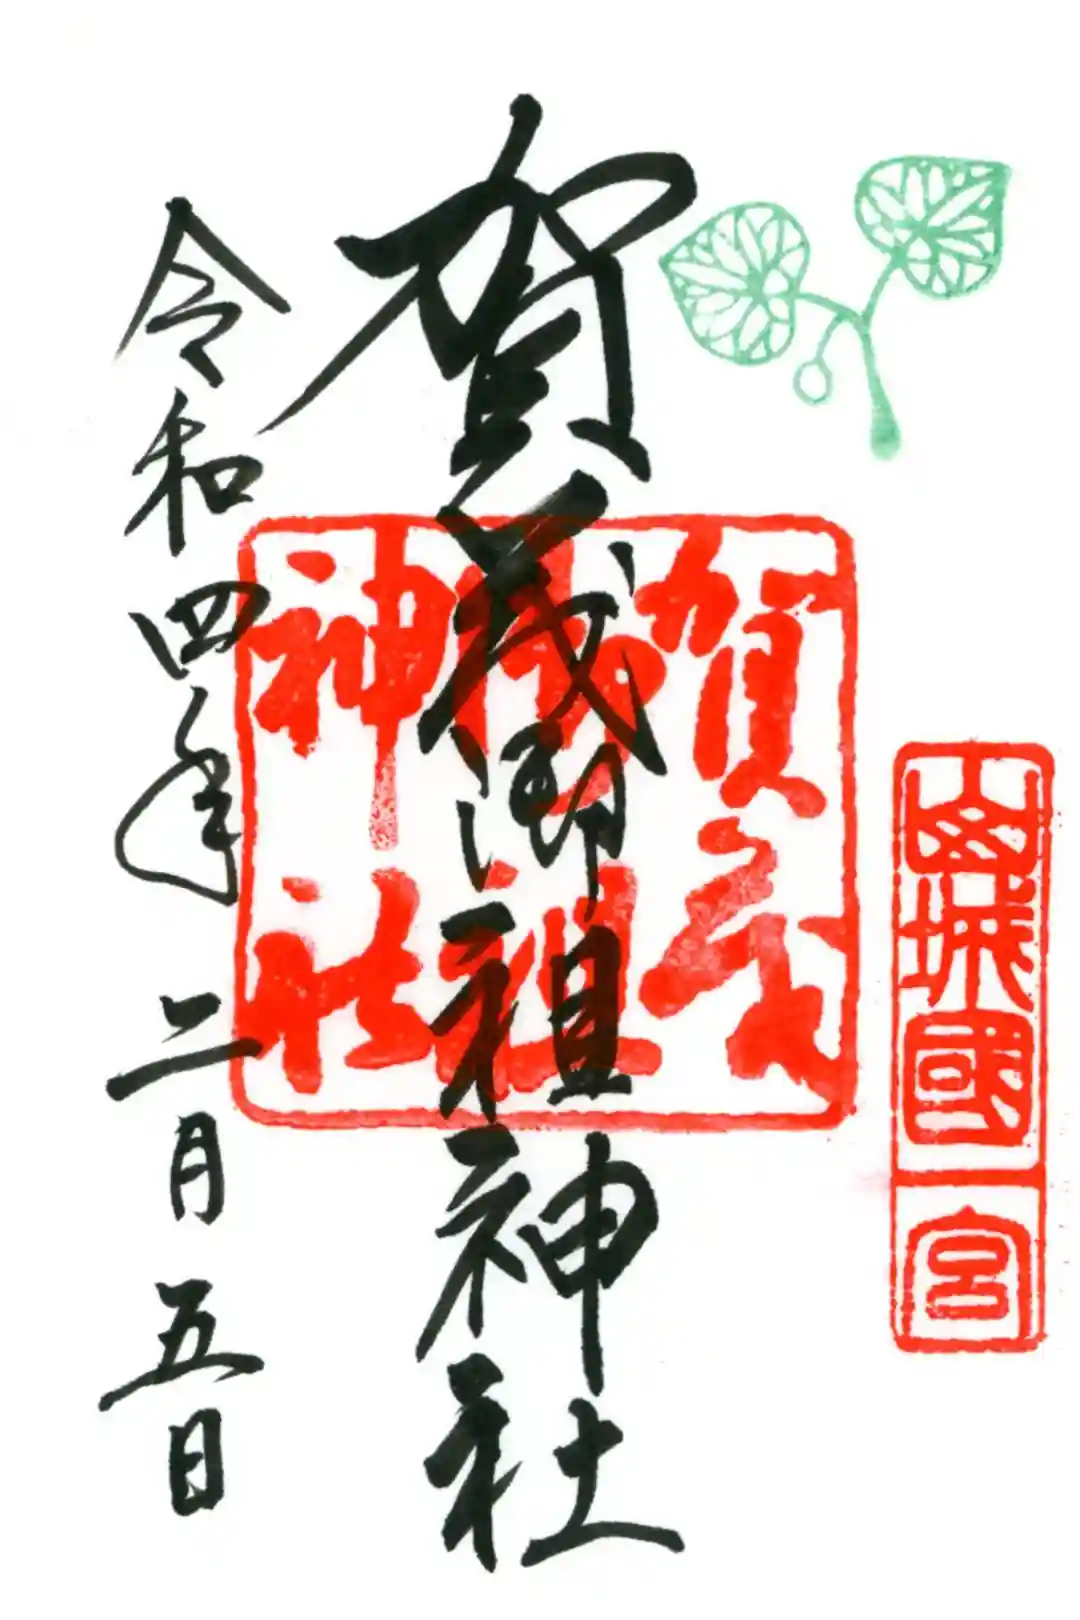 山城國
一宮
賀茂御祖神社
賀茂
御祖
神社
令和四年二月五日